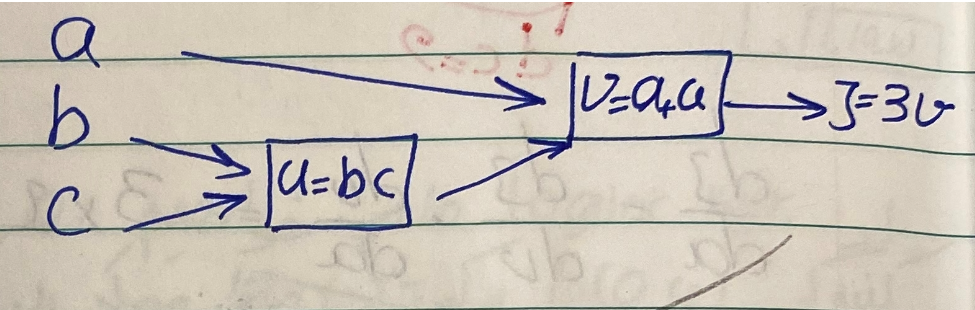 a
b
c
u=bc
v=a+u
J=3v